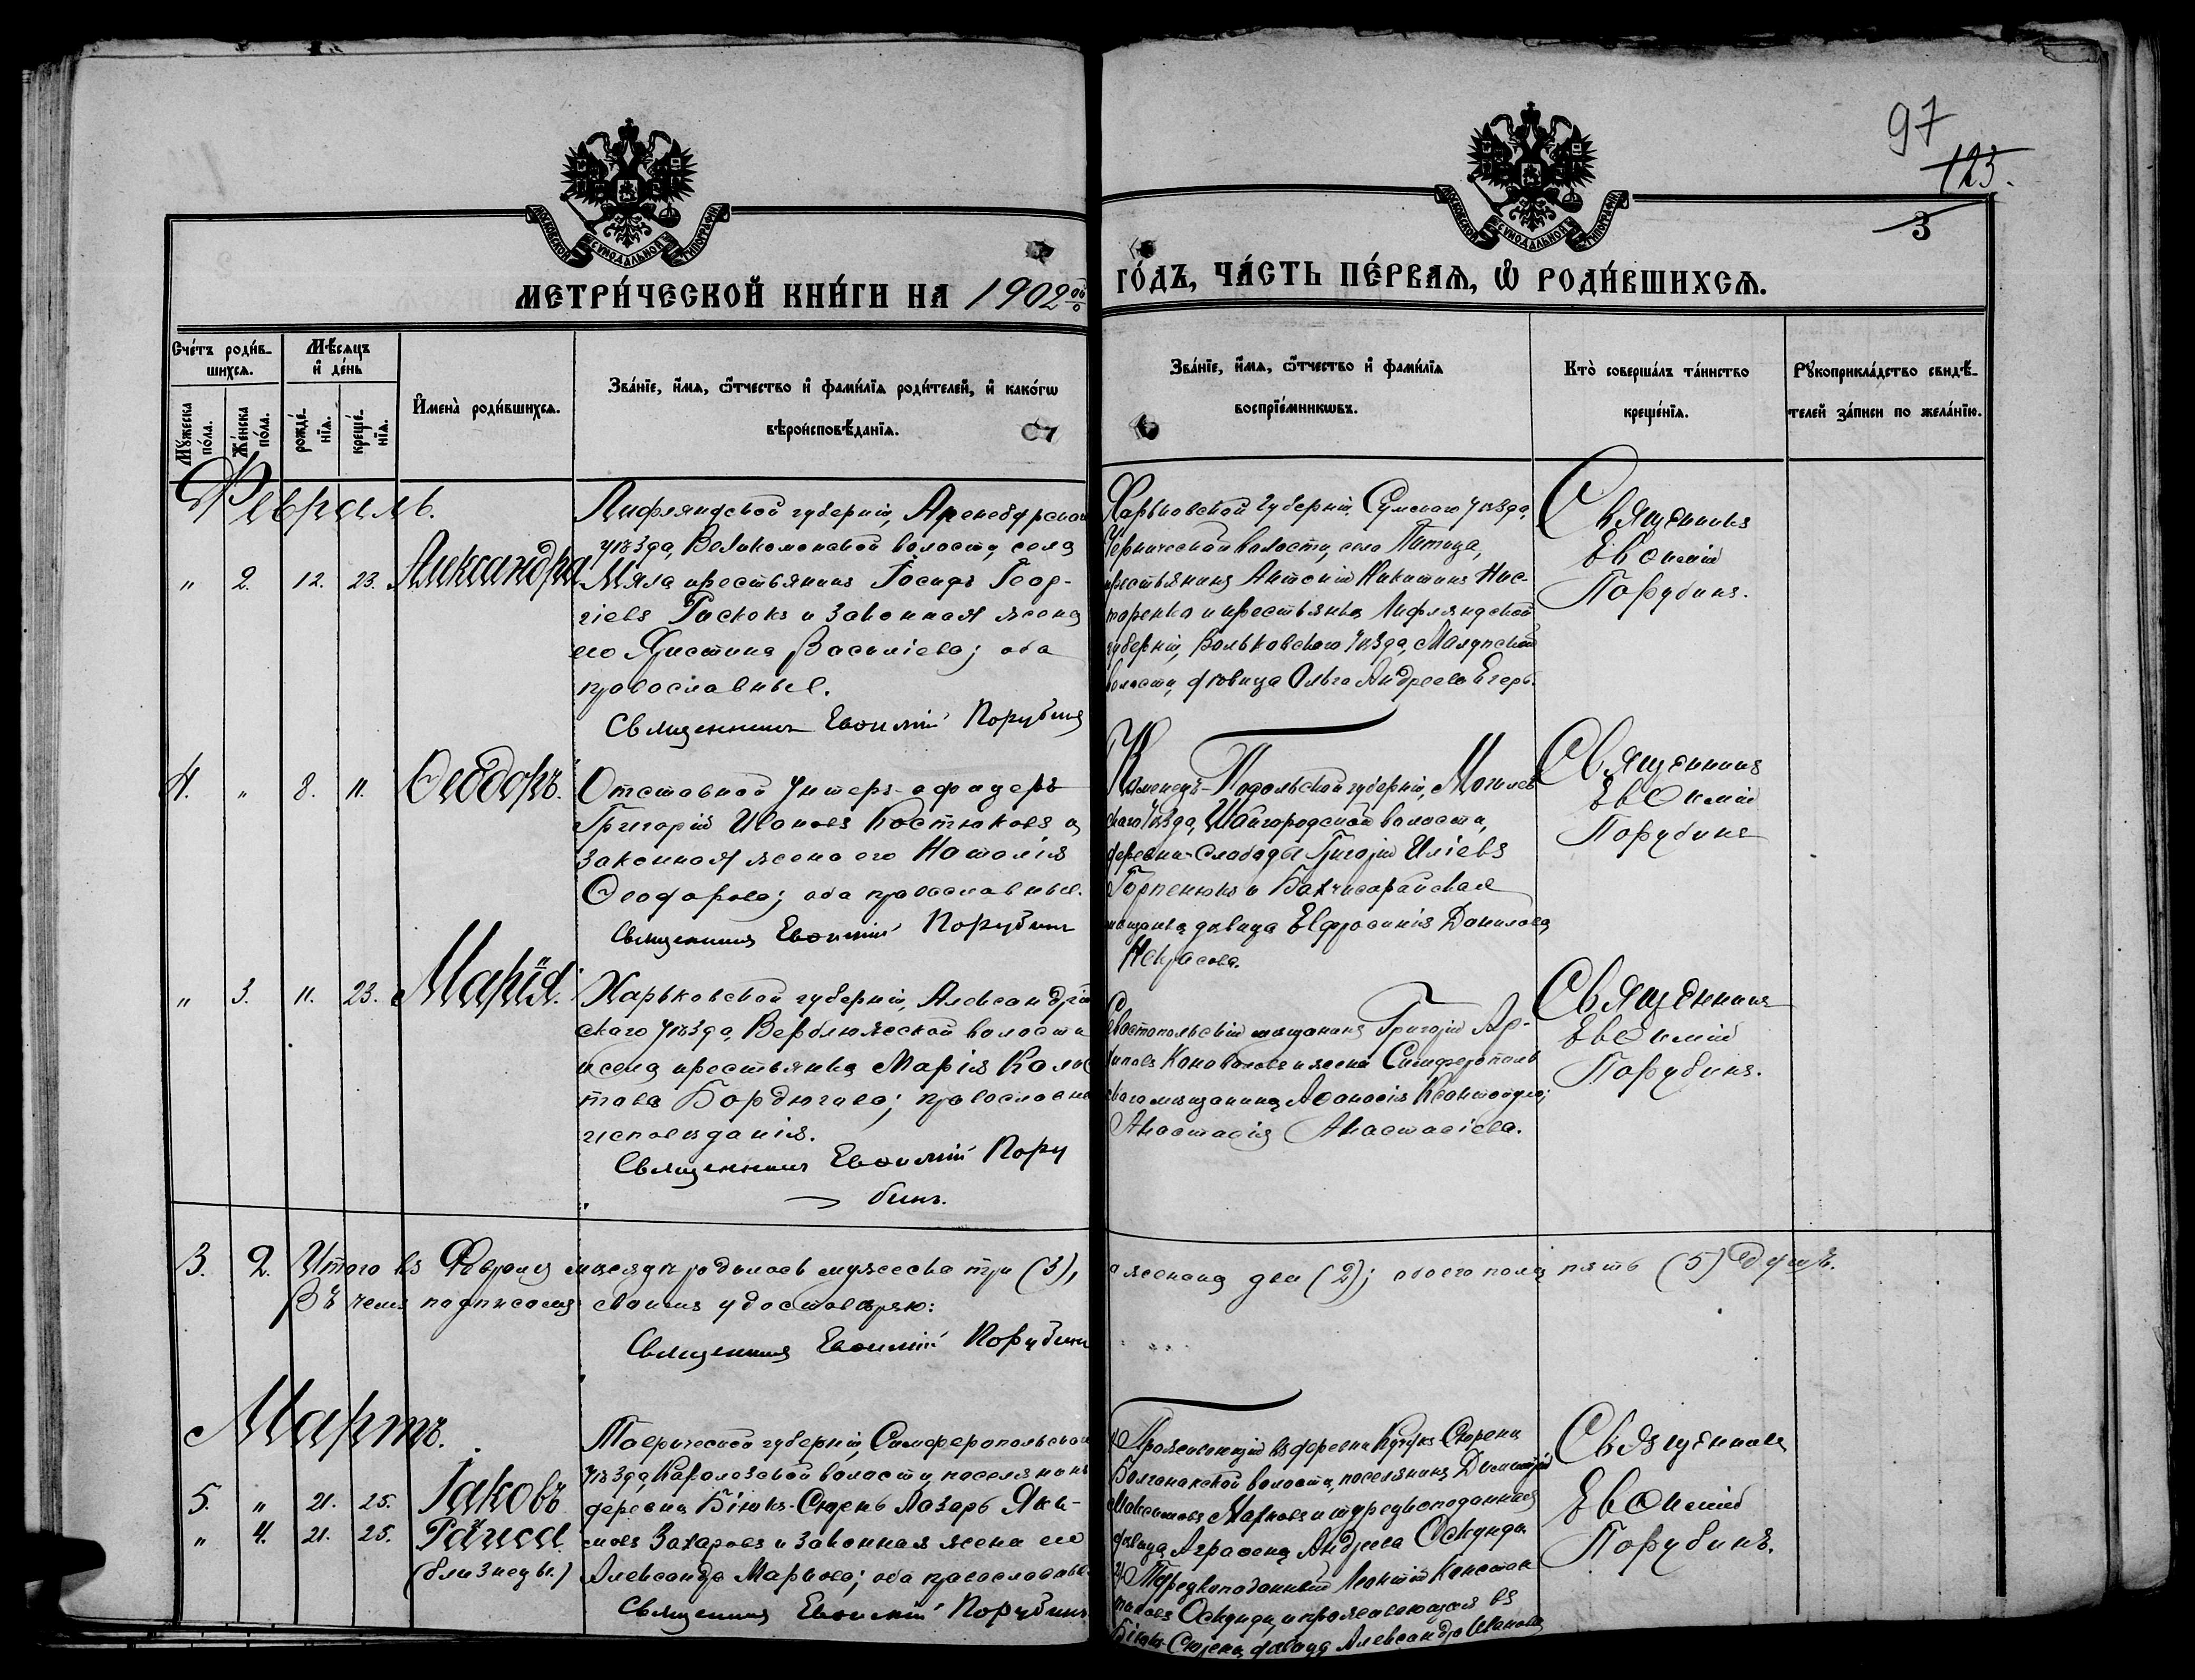 97
123.
3
МОСКОВСКОЙ СѴНОДАЛЬНОЙ ТИПОГРАФІИ
МОСКОВСКОЙ СѴНОДАЛЬНОЙ ТИПОГРАФІИ
МЕТРИ́ЧЕСКОЙ КНИ́ГИ НА 1902
ГО́ДЪ, ЧА́СТЬ ПЕ́РВАѦ, Ѡ РОДИ́ВШИХСѦ.
Сче́тъ роди́в-
шихсѧ.
Мꙋ́жеска по́ла.
Же́нска по́ла.
Мѣ́сѧцъ
и҆ де́нь
рожде́-
нїѧ.
креще́-
нїѧ.
И҆мена̀ роди́вшихсѧ.
Зва́нїе, и҆́мѧ, ѻ҆́тчество и҆ фами́лїѧ роди́телей, и҆ како́гѡ
вѣроисповѣ́данїѧ.
Зва́нїе, и҆́мѧ, ѻ҆́тчество и҆ фами́лїѧ
воспрїе́мникѡвъ.
Кто̀ соверша́лъ та́инство
креще́нїѧ.
Рꙋкоприкла́дство свидѣ́-
телей за́писи по жела́нїю.
Февраль.
" 2. 12. 23. Александра
Лифляндской губерніи, Аренсбургскаго
уѣзда, Великомонской волости, села
Мяла крестьянинъ Іосифъ Геор-
гіевъ Раскокъ и законная жена
его Христина Василіева; оба
православные.
Священникъ Евѳимій Порубинъ
Харьковской губерніи, Сумскаго уѣзда,
волости, села
крестьянинъ Антоній Никитинъ Нес-
теренко и крестьянка Лифляндской
губерніи, Вольковскаго уѣзда,
волости, дѣвица Ольга Андреева Егерь.
Священникъ
Евѳимій
Порубинъ.
4. " 8. 11. Ѳеодоръ.
Отставной унтеръ-офицеръ
Григорій Ивановъ Костюковъ и
законная жена его Наталія
Ѳеодорова; оба православные.
Священникъ Евѳимій Порубинъ
Каменецъ-Подольской губерніи, Могилев-
скаго уѣзда, Шайгородской волости,
деревни-Слободы Григорій Иліевъ
Горпенюкъ и Бахчисарайская
мѣщанка дѣвица Евфросинія Данилова
Некрасова.
Священникъ
Евѳимій
Порубинъ
" 3. 11. 23. Марія.
Харьковской губерніи, Александрій-
скаго уѣзда, Верблюжской волости
и села крестьянка Марія
Бордюгова; православна
исповѣданія.
Священникъ Евѳимій Пору
бинъ.
Севастопольскій мѣщанинъ Григорій Ар-
хиповъ Коноваловъ и жена Симферополь
скаго мѣщанина Аѳанасія
Анастасія Анастасіева.
Священникъ
Евѳимій
Порубинъ.
3. 2. Итого въ Февралѣ мѣсяцѣ родилось мужеска три (3),
а женска два (2); обоего пола пять (5) душъ.
Въ чемъ подписомъ своимъ удостовѣряю:
Священникъ Евѳимій Порубинъ
Мартъ.
5. " 21. 25. Іаковъ
" 4. 21. 25. Раиса.
(близнецы.)
Таврической губерніи, Симферопольскаго
уѣзда, Каралезской волости, поселянинъ
деревни Біюкъ-Сюрень Лазарь Яки-
мовъ Захаровъ и законная жена его
Александра Маркова; оба православные.
Священникъ Евѳимій Порубинъ
1) Проживающій въ деревни Кучукъ Сюрени
волости, поселянинъ Димитрій
Марковъ и турецкоподанная
дѣвица Аграфена Андреева
2) Турецкоподанный Леонтій Констан
тиновъ и проживающая въ
Біюкъ-Сюрень дѣвица Александра Иванова
Священникъ
Евѳимій
Порубинъ.